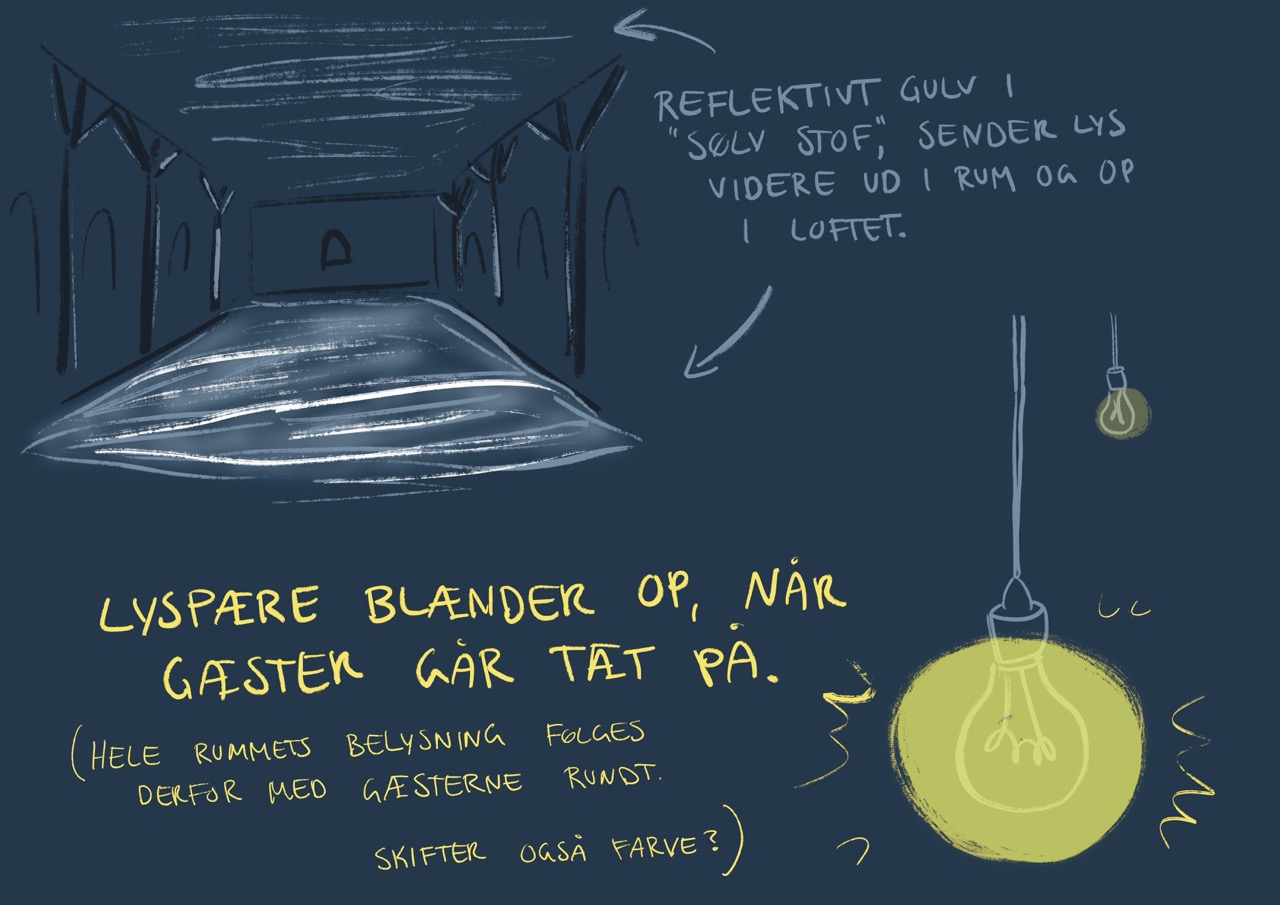 REFLEKTIVT GULV I
"SØLV STOF", SENDER LYS
VIDERE UD I RUM OG OP
I LOFTET.
LYSPÆRE BLÆNDER OP, NÅR
GÆSTER GÅR TÆT PÅ.
(HELE RUMMETS BELYSNING FØLGES
DERFOR MED GÆSTERNE RUNDT.
SKIFTER OGSÅ FARVE?)